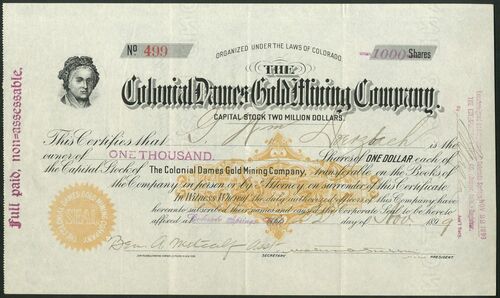 Nº 499
ORGANIZED UNDER THE LAWS OF COLORADO.
1000 Shares
THE
Colonial Dames Gold Mining Company.
CAPITAL STOCK TWO MILLION DOLLARS.
This Certifies that
owner of ONE THOUSAND. Shares of ONE DOLLAR each of
the Capital Stock of The Colonial Dames Gold Mining Company, transferable on the Books of
the Company in person or by Attorney on surrender of this Certificate.
In Witness Whereof, the duly authorized officers of this Company have
hereunto subscribed their names and caused the Corporate Seal to be hereto
affixed at Colorado Springs this 22 day of Nov. 1899
Ben. A. Metcalf Asst
SECRETARY
PRESIDENT
Full paid, non=assessable.
SEAL